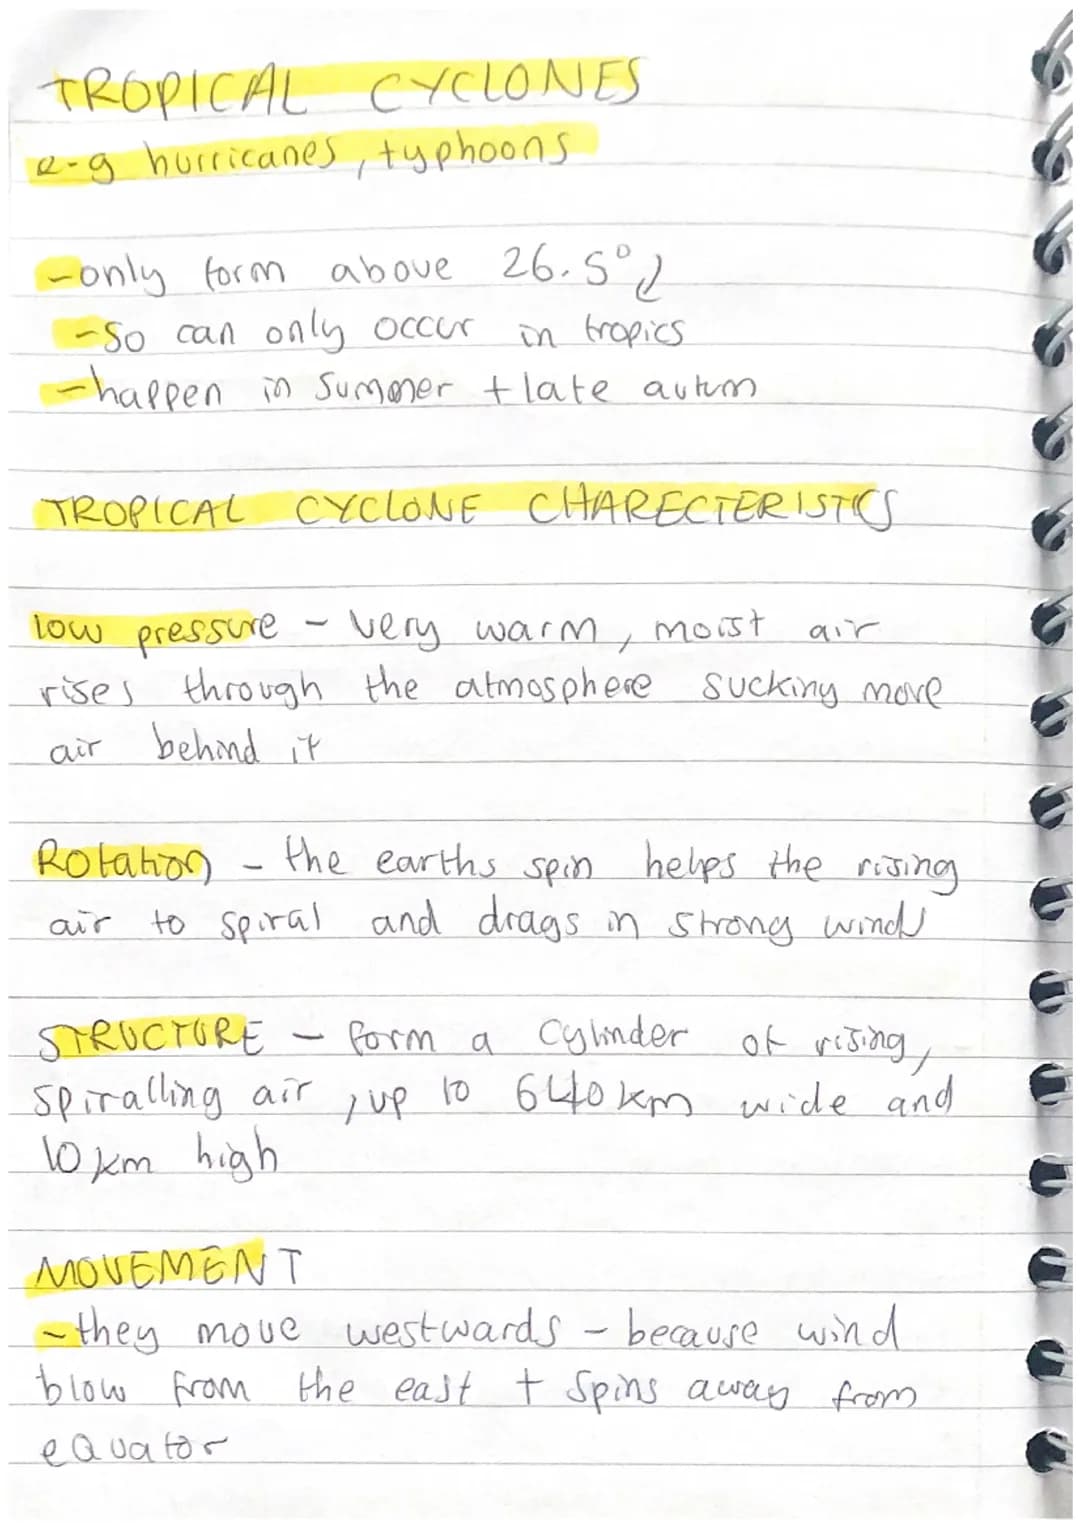 TROPICAL CYCLONES
e-g hurricanes, typhoons
-only form above 26.5°
-so can only occur in tropics
-happen in Summer + late autum
TROPICAL CYCLONE CHARECTERISTICS
low pressure - very warm, moist air
rises through the atmosphere sucking more
air behind it
Rotation - the earths spin helps the rising
air to spiral and drags in strong winds
STRUCTURE - form a cylinder of rising,
spiralling air, up to 640km wide and
10km high
MOVEMENT
-they move westwards - because wind
blow from the east + spins away from
equator